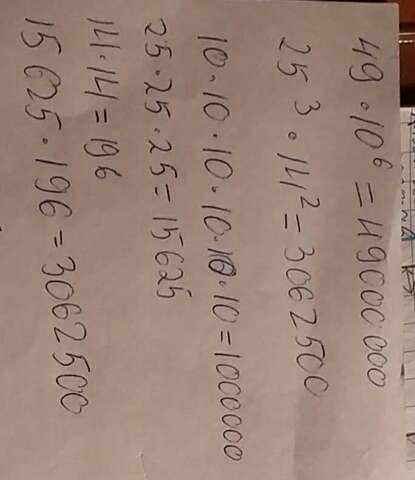 49 · 10⁶ = 49000 000
25³ · 14² = 3062500
10 · 10 · 10 · 10 · 10 · 10 = 1000000
25 · 25 · 25 = 15625
14 · 14 = 196
15 625 · 196 = 3062500